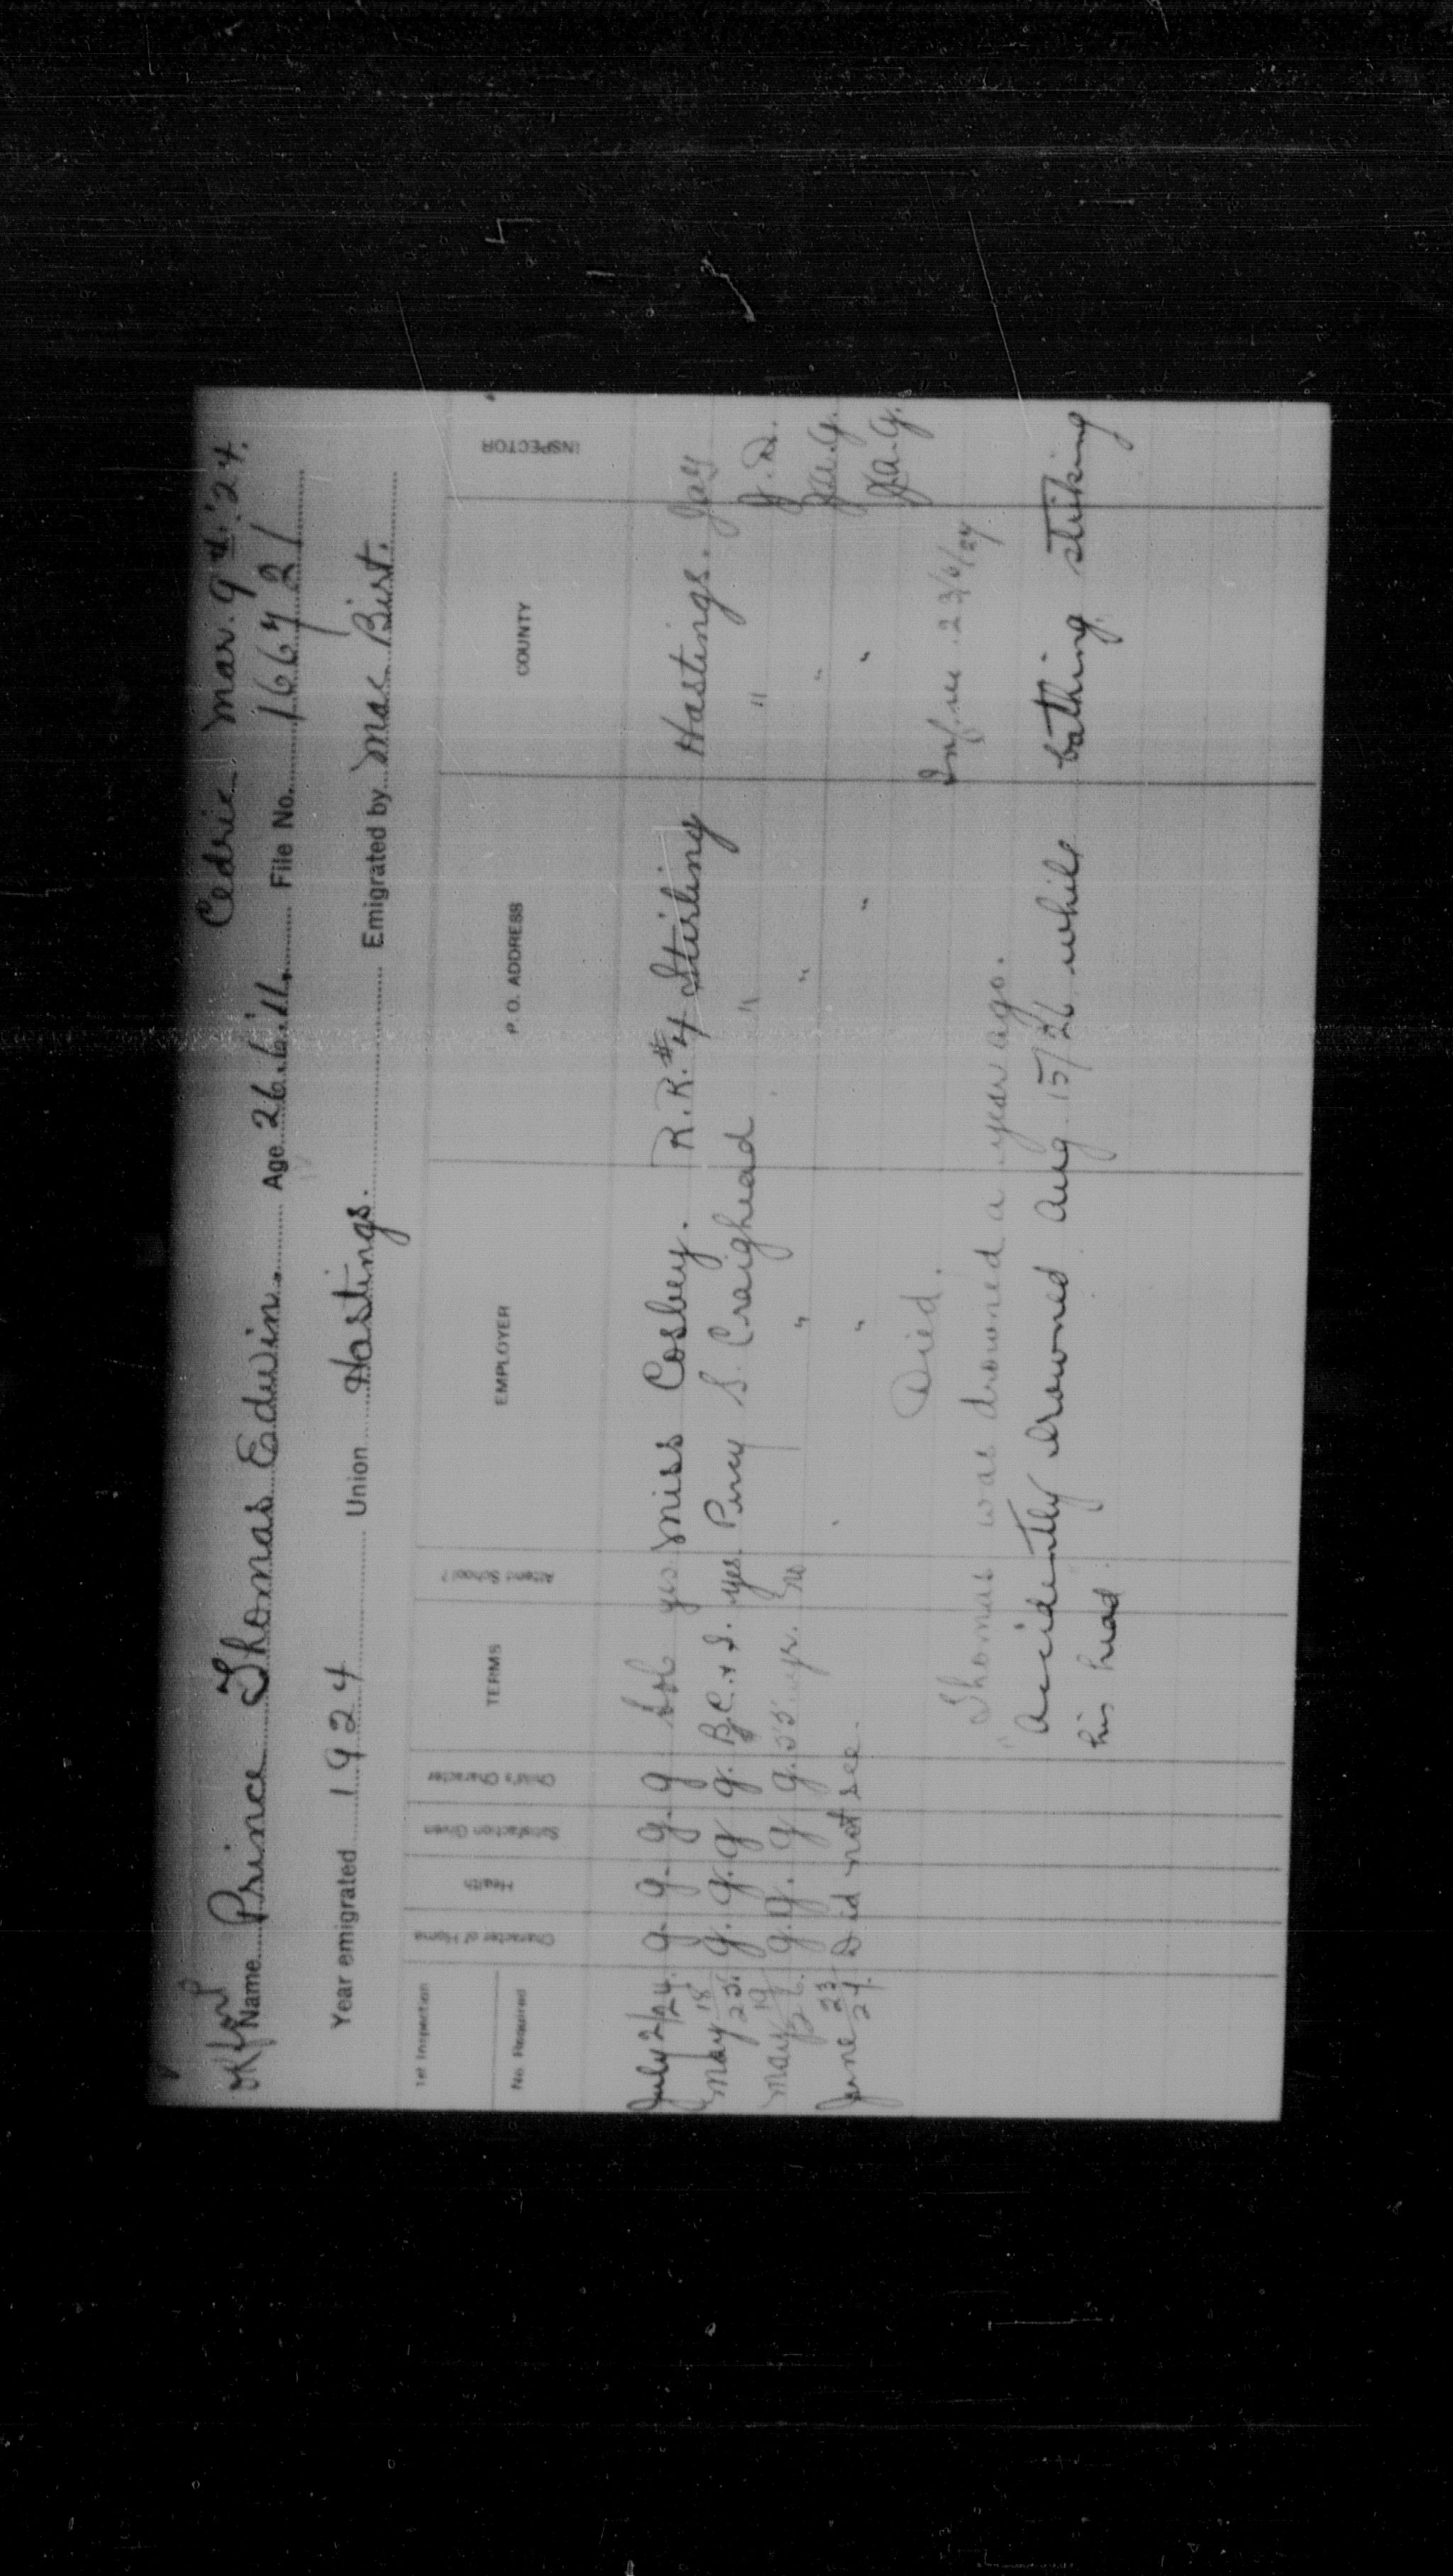 Cedric Mar. 9th '24.
Name Prince Thomas Edwin. Age 26.6.'11. File No. 166721
Year emigrated 1924 Union Hastings. Emigrated by Mac Birt.
1st Inspection
No. Required
Character of Home
Health
Satisfaction Given
Child's Character
TERMS
Attend School?
EMPLOYER
P. O. ADDRESS
COUNTY
INSPECTOR
July 2/24. g. g. g. g yes Miss Cosbey. R.R. #4 Stirling Hastings.
May 18/25. g. g. g g. B.C. & S. yes. Percy S. Craighead " "
May 19/26. g. g. g g. yr. no " " " J.A.G.
June 23/27. Did not see. " " " J.A.G.
Died. 23/6/27
Thomas was drowned a year ago.
Accidently drowned Aug. 15/26 while bathing striking
his head